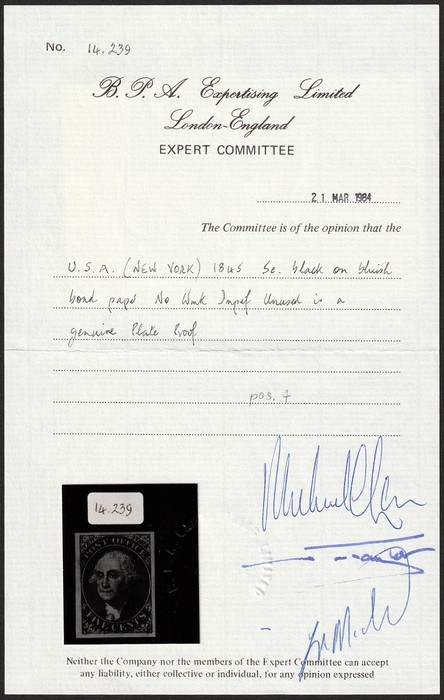 No. 14.239
B. P. A. Expertising Limited
London-England
EXPERT COMMITTEE
21 MAR 1984
The Committee is of the opinion that the
U.S.A. (NEW YORK) 1845 5c. black on bluish
bond paper No Wmk Imperf Unused is a
genuine Plate Proof
pos. 4
14.239
POST OFFICE
FIVE CENTS
Neither the Company nor the members of the Expert Committee can accept
any liability, either collective or individual, for any opinion expressed